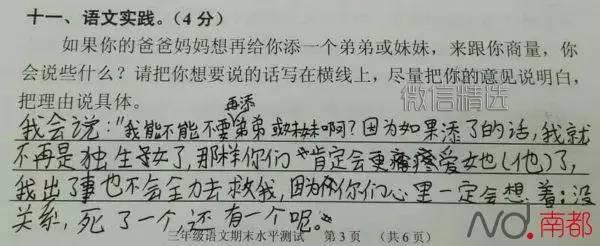 十一、语文实践。(4分)
如果你的爸爸妈妈想再给你添一个弟弟或妹妹，来跟你商量，你
会说些什么？请把你想要说的话写在横线上，尽量把你的意见说明白，
把理由说具体。
微信精选
再添
我会说："我能不能不要弟弟或妹妹啊？因为如果添了的话，我就
不再是独生子女了，那样你们肯定会更疼爱她(他)了，
我出了事也不会全力去救我，因为你们心里一定会想着：没
关系，死了一个，还有一个呢。"
三年级语文期末水平测试 第3页 (共6页)
nd.南都